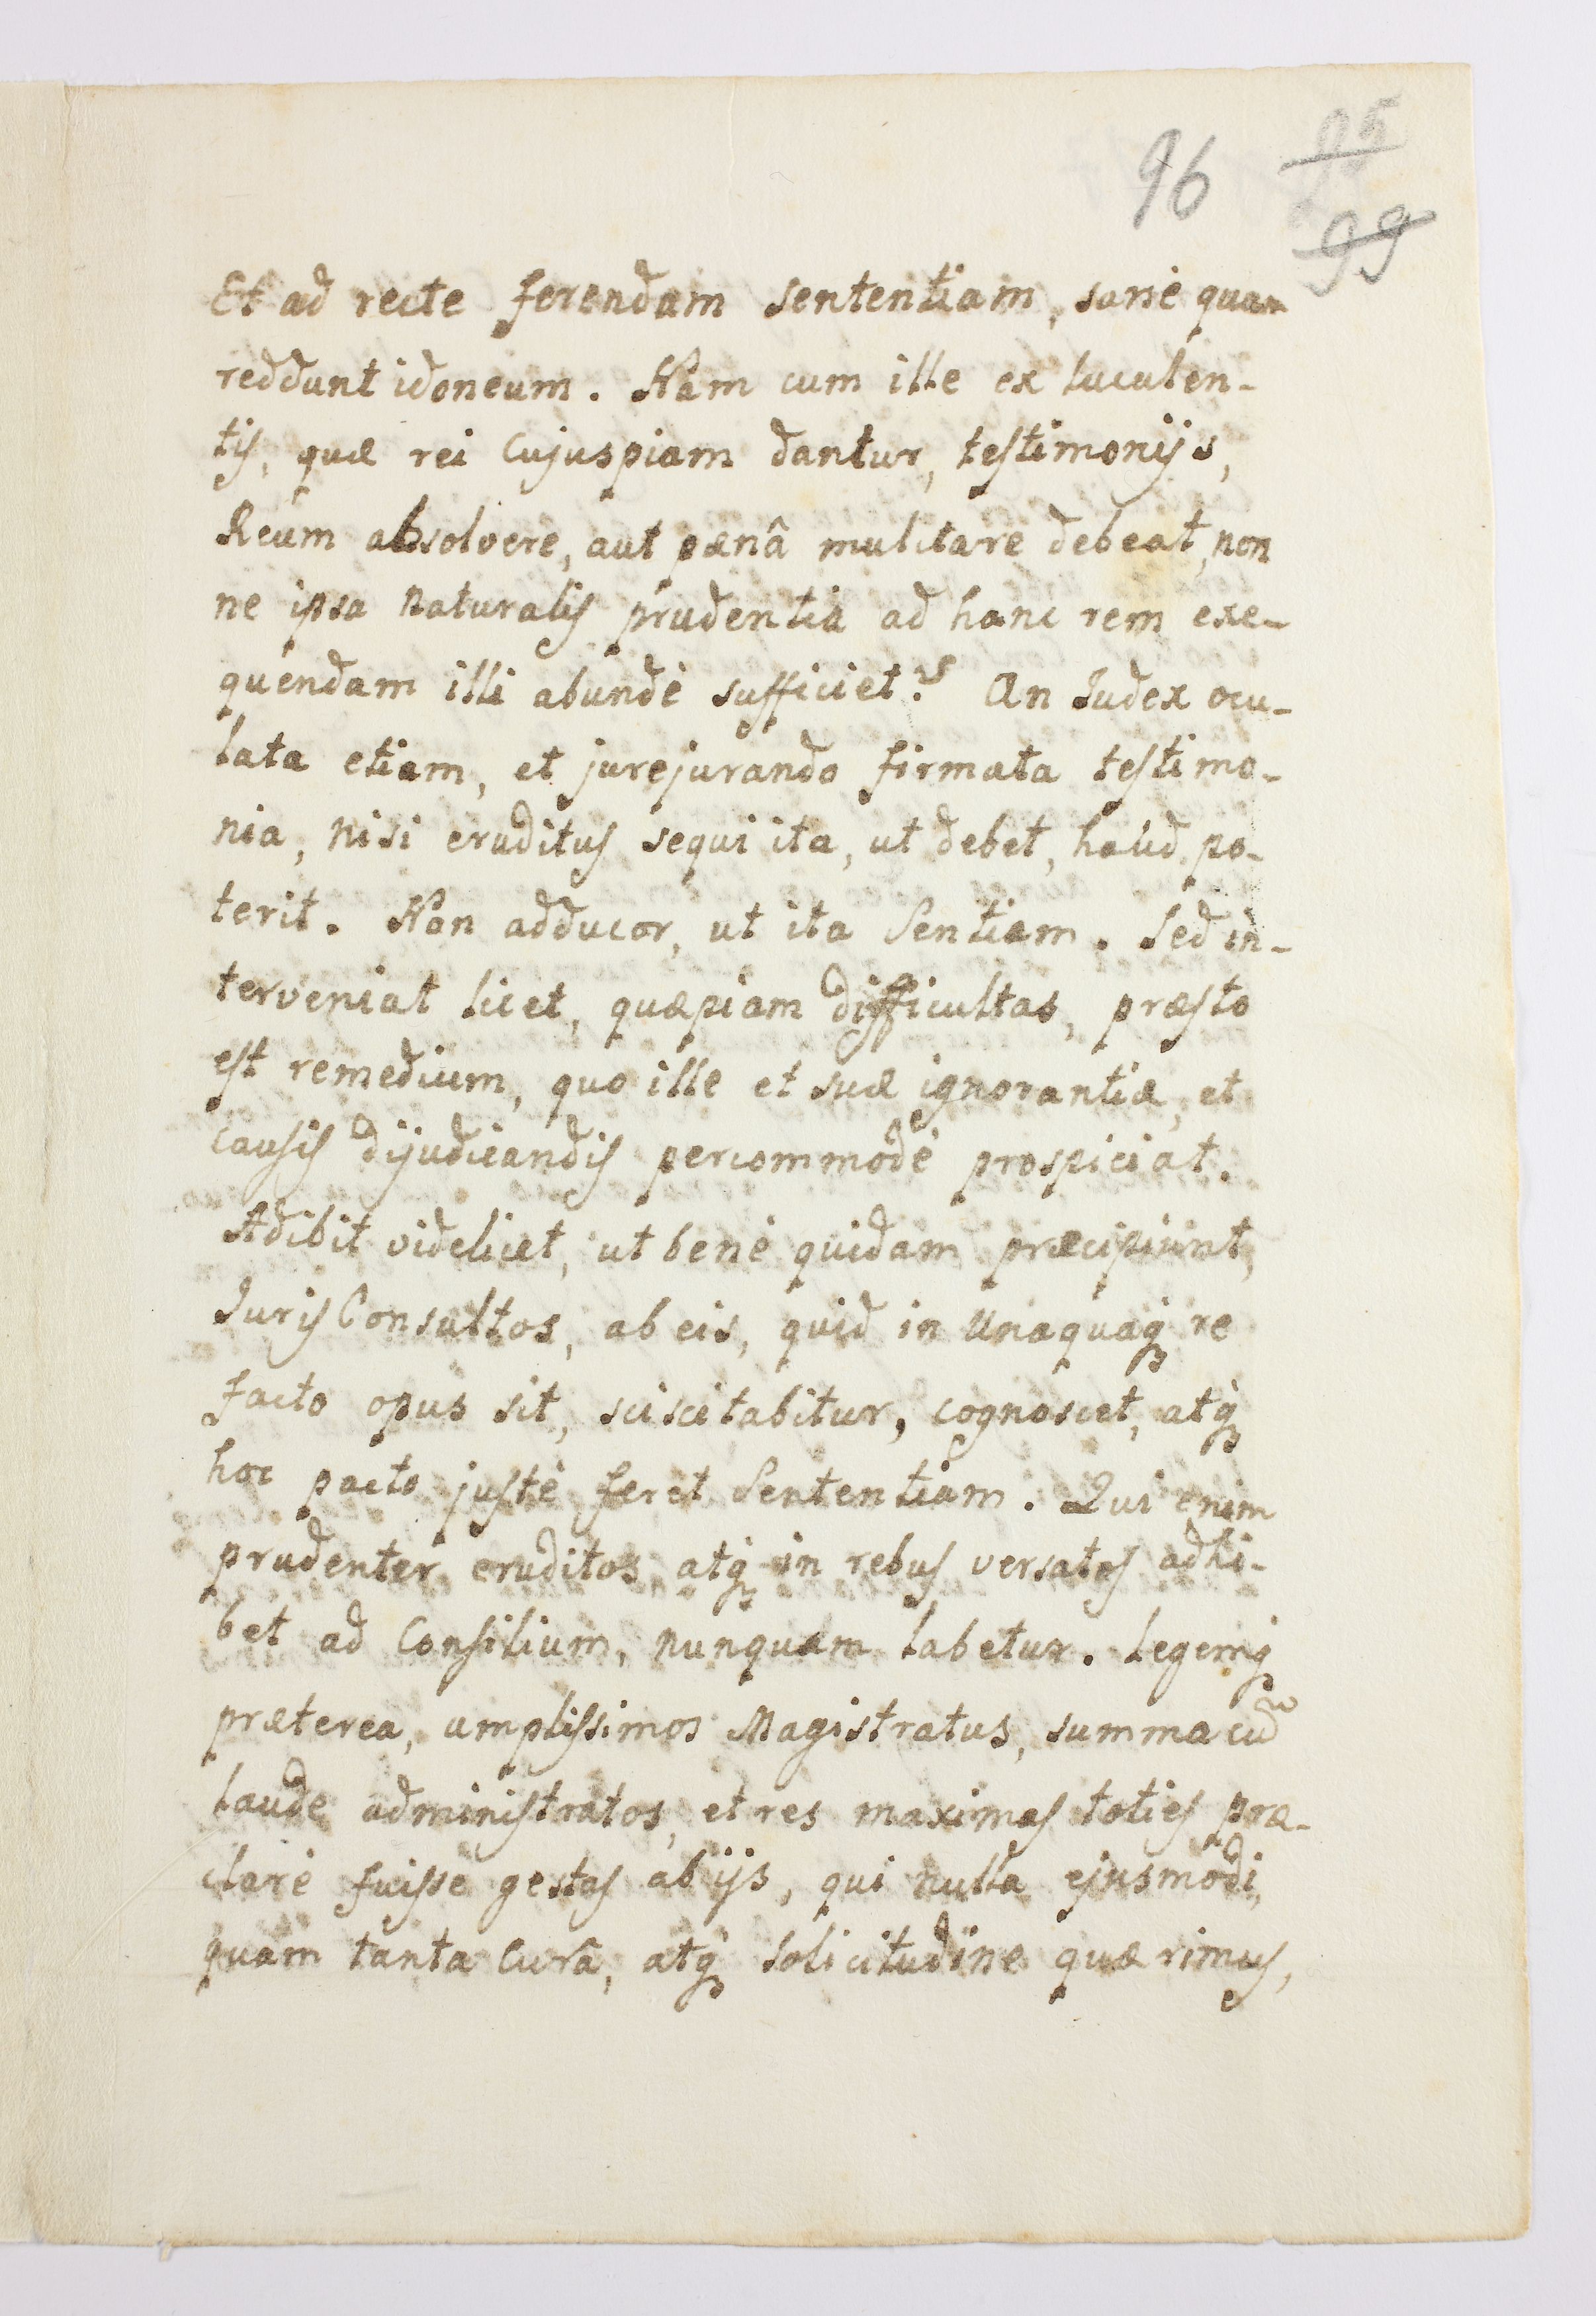 96
95
99
Et ad recte ferendam sententiam, sanè quam
reddunt idoneum. Nam cum ille ex luculen-
tis, quæ rei Cujuspiam dantur, testimonijs,
Reum absolvere, aut pænâ mulctare debeat, non
ne ipsa naturalis prudentia ad hanc rem exe-
quendam illi abundè sufficiet? An Iudex ocu-
lata etiam, et jurejurando firmata testimo-
nia, nisi eruditus sequi ita, ut debet, haud po-
terit. Non adducor, ut ita Sentiam. Sed in-
terveniat licet, quæpiam difficultas, præsto
est remedium, quo ille et suæ ignorantiæ, et
causis dijudicandis percommodè prospiciat.
Adibit videlicet, ut benè quidam præcipiunt,
Juris Consultos, ab eis, quid in Unaquaq́ re
facto opus sit, sciscitabitur, cognoscet, atq́
hoc pacto justè feret Sententiam. Qui enim
prudenter eruditos, atq́ in rebus versatos adhi-
bet ad Consilium, nunquam labetur. Legimq́
præterea, amplissimos Magistratus, summa cũ
laude administratos, et res maximas toties præ-
clarè fuisse gestas ab ijs, qui nulla ejusmodi,
quam tanta Curâ, atq́ solicitudine quærimus,